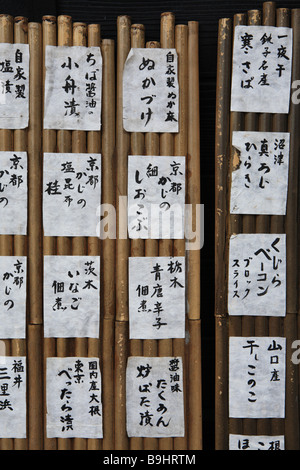 一夜干
銚子名産
寒さば
沼津
真あじ
ひらき
くじら
ベーコン
ブロック
スライス
山口産
干しこのこ
自家製ぬか床
ぬかづけ
京都
かじの
細
しおこぶ
栃木
青唐辛子
佃煮
醤油味
たくあん
炉ばた漬
ちば醤油の
小舟漬
京都
かじの
塩昆布
桂
茨木
いなご
佃煮
国内産大根
東京
べったら漬
自家製
塩漬
京都
かじの
京都
かじの
福井
三里浜
alamy